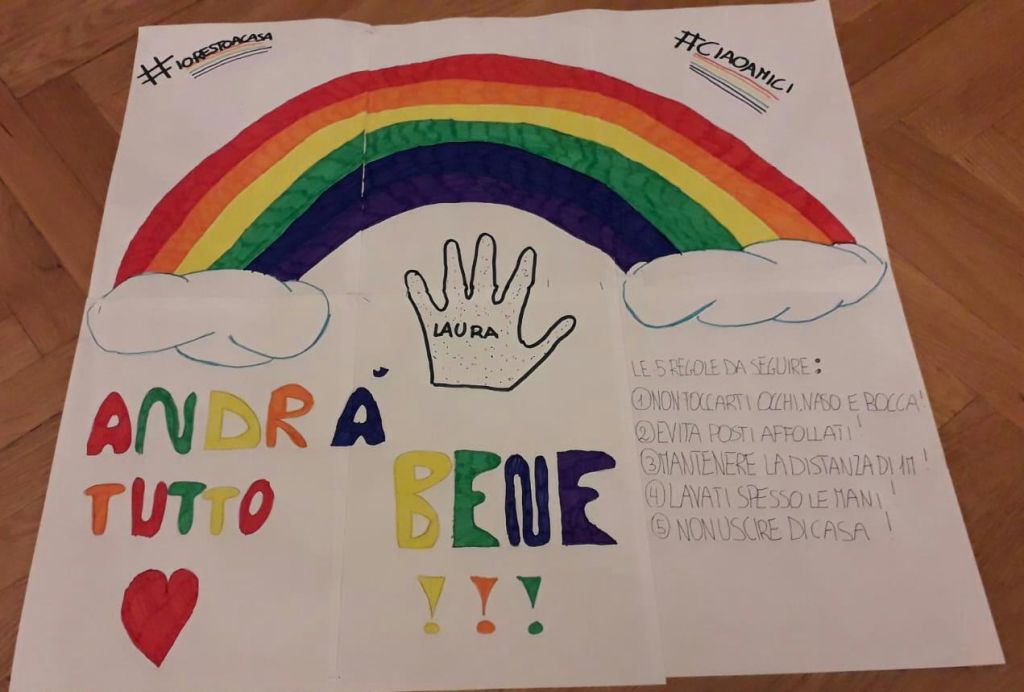 #IORESTOACASA
#CIAOAMICI
LAURA
ANDRÀ
TUTTO
BENE
!!!
LE 5 REGOLE DA SEGUIRE:
① NON TOCCARTI OCCHI, NASO E BOCCA!
② EVITA POSTI AFFOLLATI!
③ MANTENERE LA DISTANZA DI 1M!
④ LAVATI SPESSO LE MANI!
⑤ NON USCIRE DI CASA!